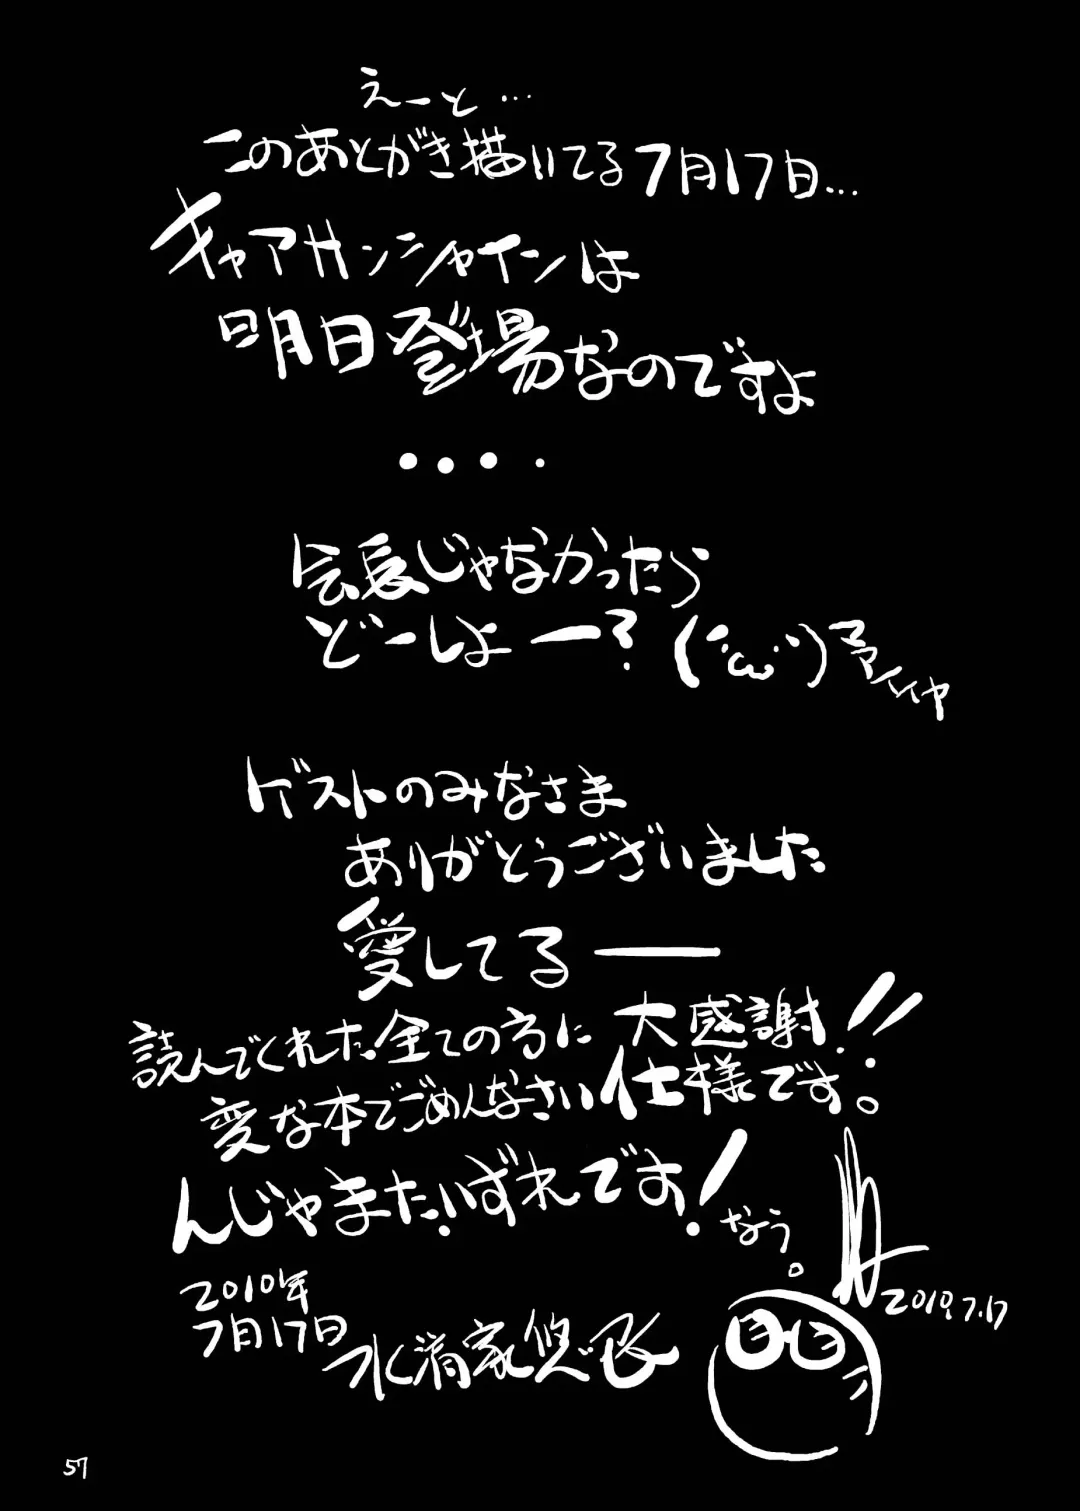 えーと…
このあとがき描いてる7月17日…
キャアサンシャインは
明日登場なのですよ
・・・・
会長じゃなかったら
どーしよー? (´・ω・`)
ゲストのみなさま
ありがとうございました
愛してるー
読んでくれた全ての方に大感謝!!
変な本でごめんなさい仕様です。
んじゃまたいずれです! なう。
2010年
7月17日
2010.7.17
57